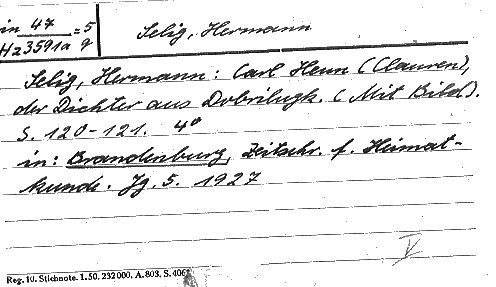 in 47 = 5
Hz 3591a 9
Selig, Hermann
Selig, Hermann: Carl Heun (Clauren),
der Dichter aus Dobrilugk. (Mit Bild).
S. 120-121. 4°
in: Brandenburg, Zeitschr. f. Heimat-
kunde. Jg. 5. 1927
V
Reg. 10. Stichnote. 1.50. 232000. A. 803. S. 406